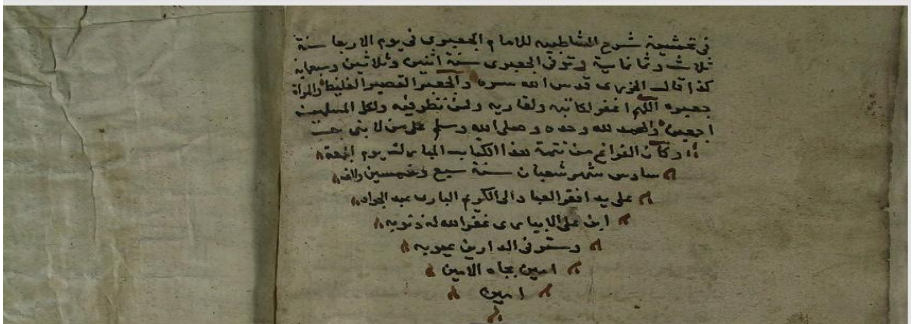 في تحشية شرح الشاطبية للامام الجعبري في يوم الاربعا سنة
ثلاث وثمانماية وتوفي الجعبري سنة اثنين وثلاثين وسبعماية
كذا قال الجزري قدس الله سره والجعبر القصير الغليظ والمراة
جعبره اللهم اغفر لكاتبه ولقاريه ولمن نظر فيه ولكل المسلمين
اجمعين والحمد لله وحده وصلى الله وسلم على من لا نبي بعده
وكان الفراغ من تتمة هذا الكتاب المبارك يوم الجمعة
سادس شهر شعبان سنة سبع وخمسين والف
على يد افقر العباد الى الكريم الباري عبد الجواد
ابن علي الابياري غفر الله له ذنوبه
وستر في الدارين عيوبه
امين بجاه الامين
امين